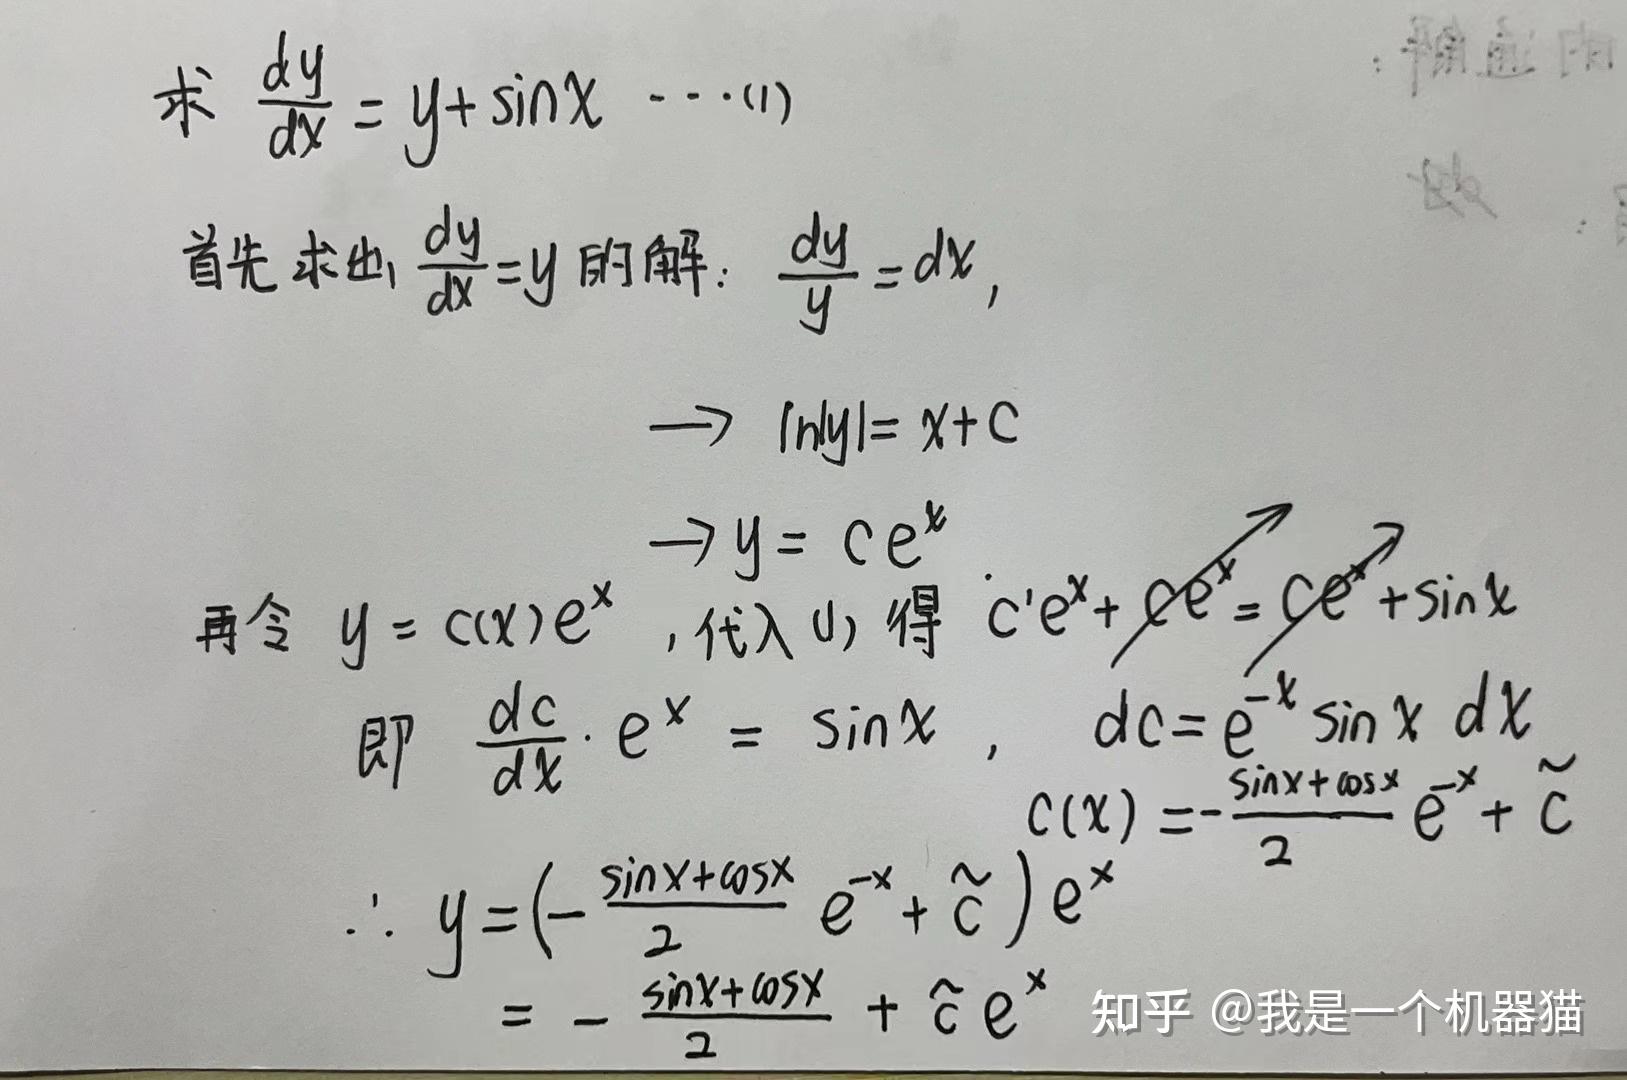 求 dy/dx = y + sinx ····(1)
首先求出 dy/dx = y 的解: dy/y = dx,
→ ln|y| = x + c
→ y = c e^x
再令 y = c(x) e^x , 代入(1)得 c'e^x + ce^x = ce^x + sinx
即 dc/dx · e^x = sinx , dc = e^{-x} sinx dx
c(x) = - (sinx+cosx)/2 e^{-x} + c̃
∴ y = (- (sinx+cosx)/2 e^{-x} + c̃ ) e^x
= - (sinx+cosx)/2 + c̃ e^x
知乎 @我是一个机器猫
的通解: